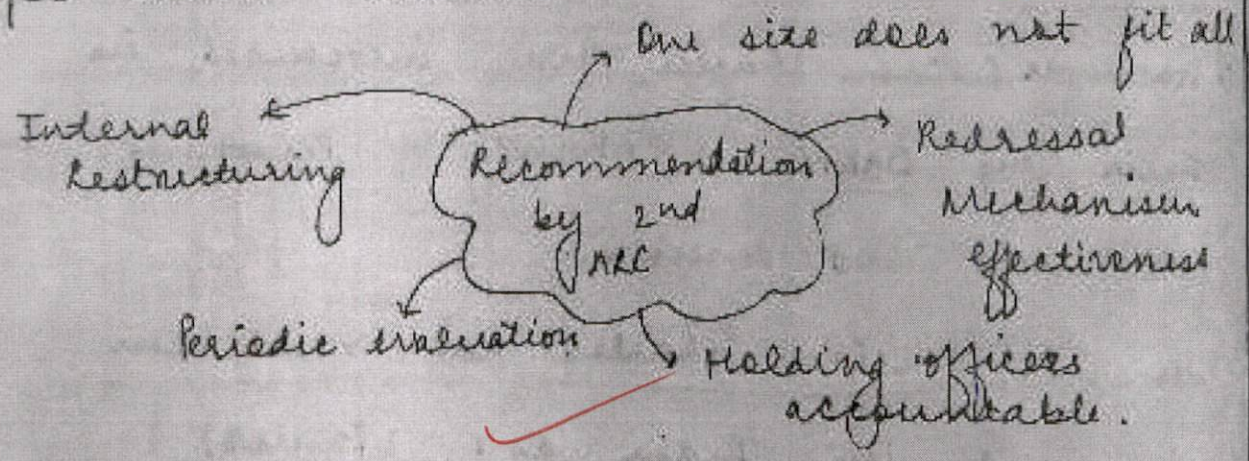 One size does not fit all
Internal
Restructuring
Recommendation
by 2nd
ARC
Redressal
Mechanism
effectiveness
Periodic evaluation
Holding officers
accountable.